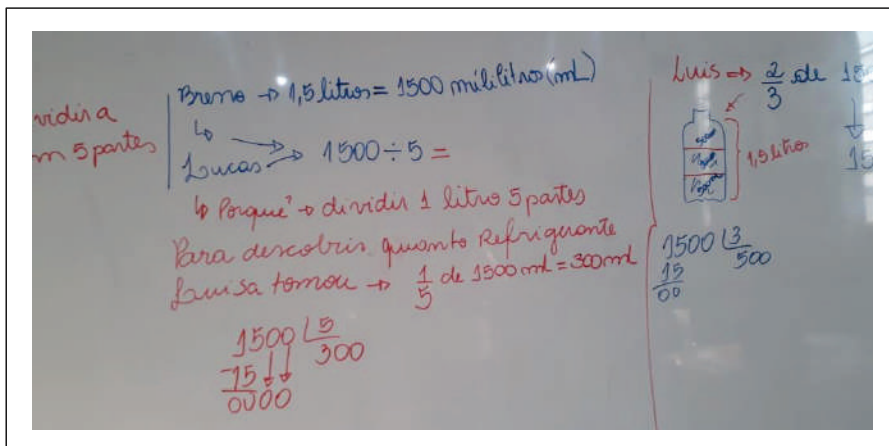 vidir a
m 5 partes
Breno → 1,5 litros = 1500 mililitros (mL)
↳
Lucas → 1500 ÷ 5 =
↳ Porque → dividir 1 litro 5 partes
Para descobrir quanto Refrigerante
Luisa tomou → 1/5 de 1500 ml = 300 ml
1500 | 5
-15 300
0000
Luis ⇒ 2/3 de 15
1,5 litros
15
1500 | 3
15 500
00